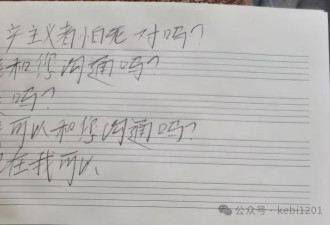 主义者怕死对吗?
和你沟通吗?
吗?
可以和你沟通吗?
在我可以
公众号·kebi1201